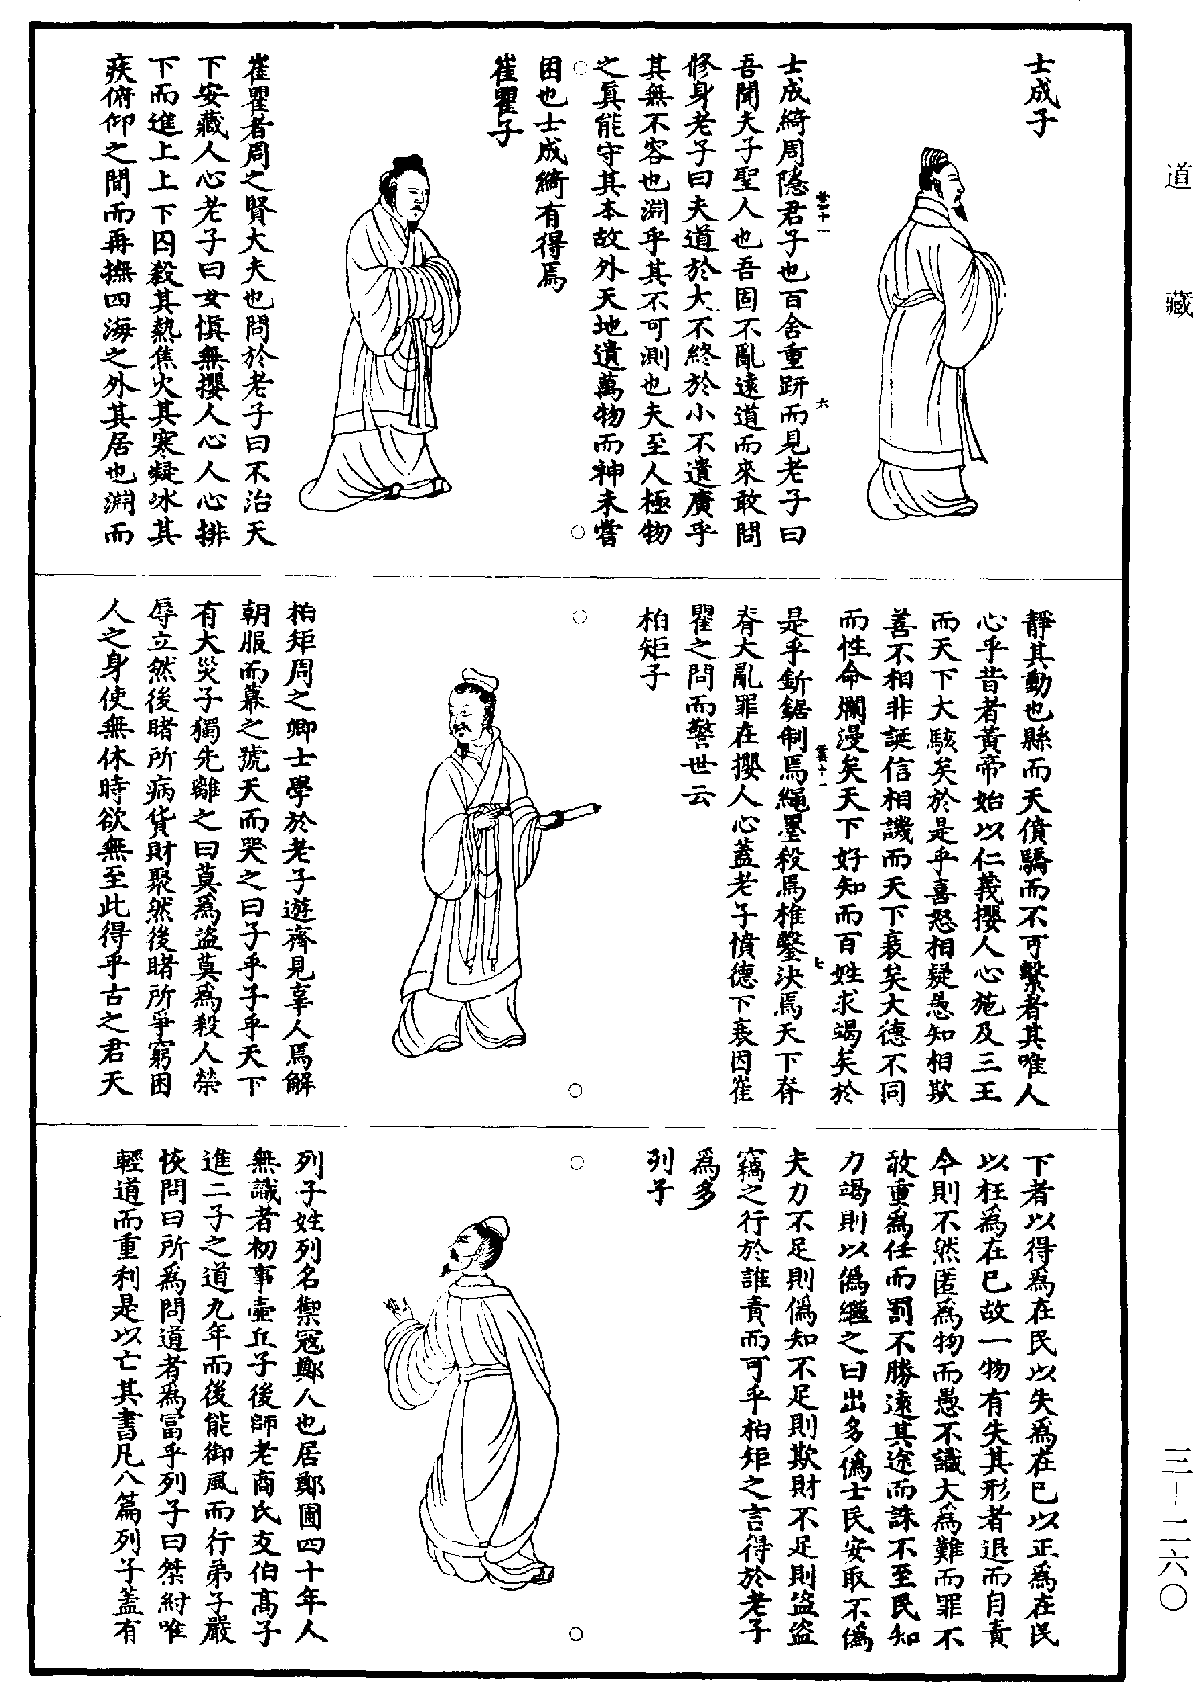 道藏
三-二六〇
士成子
士成綺周隱君子也百舍重趼而見老子曰
吾聞夫子聖人也吾固不亂遠道而來敢問
修身老子曰夫道於大不終於小不遺廣乎
其無不容也淵乎其不可測也夫至人極物
之真能守其本故外天地遺萬物而神未嘗
困也士成綺有得焉
崔瞿子
崔瞿者周之賢大夫也問於老子曰不治天
下安藏人心老子曰女慎無攖人心人心排
下而進上上下囚殺其熱焦火其寒凝冰其
疾俯仰之間而再撫四海之外其居也淵而
六
靜其動也縣而天僨驕而不可繫者其唯人
心乎昔者黃帝始以仁義攖人心施及三王
而天下大駭矣於是乎喜怒相疑愚知相欺
善不相非誕信相譏而天下衰矣大德不同
而性命爛漫矣天下好知而百姓求竭矣於
是乎釿鋸制焉繩墨殺焉椎鑿決焉天下脊
脊大亂罪在攖人心蓋老子憤德下衰因崔
瞿之問而警世云
柏矩子
柏矩周之卿士學於老子遊齊見辜人焉解
朝服而幕之號天而哭之曰子乎子乎天下
有大災子獨先離之曰莫為盜莫為殺人榮
辱立然後睹所病貨財聚然後睹所爭窮困
人之身使無休時欲無至此得乎古之君天
七
下者以得為在民以失為在已以正為在民
以枉為在已故一物有失其形者退而自責
今則不然匿為物而愚不識大為難而罪不
敢重為任而罰不勝遠其途而誅不至民知
力竭則以偽繼之曰出多偽士民安取不偽
夫力不足則偽知不足則欺財不足則盜盜
竊之行於誰責而可乎柏矩之言得於老子
為多
列子
列子姓列名禦寇鄭人也居鄭圃四十年人
無識者初事壺丘子後師老商氏友伯高子
進二子之道九年而後能御風而行弟子嚴
恢問曰所為問道者為富乎列子曰桀紂唯
輕道而重利是以亡其書凡八篇列子蓋有